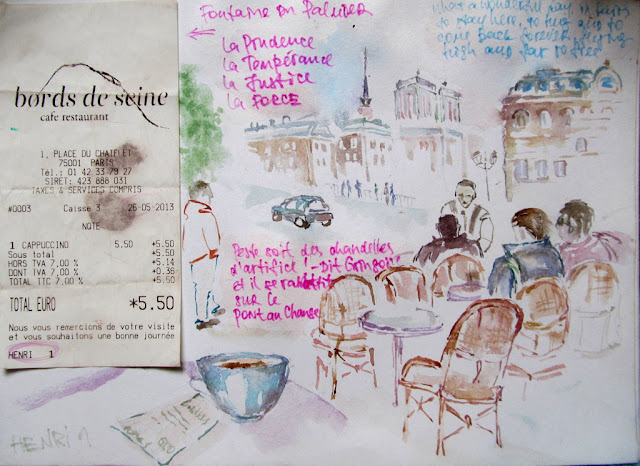 bords de seine
cafe restaurant
1, PLACE DU CHATELET
75001 PARIS
Tél.: 01 42 33 79 27
SIRET: 423 888 031
TAXES & SERVICES COMPRIS
#0003 Caisse 3 26-05-2013
NOTE
1 CAPPUCCINO 5.50 +5.50
Sous total +5.50
HORS TVA 7,00 % +5.14
DONT TVA 7,00 % +0.36
TOTAL TTC 7,00 % +5.50
TOTAL EURO *5.50
Nous vous remercions de votre visite
et vous souhaitons une bonne journée
HENRI 1
HENRI 1
Fontaine
la Prudence
la Tempérance
la Justice
la FORCE
what a wonderful day in Paris
to stay here, to and to
come back forever
high and far
Peste soit des chandelles
d'artifice! - Dit Gringoire
et il se rabattit
sur le
Pont au Change